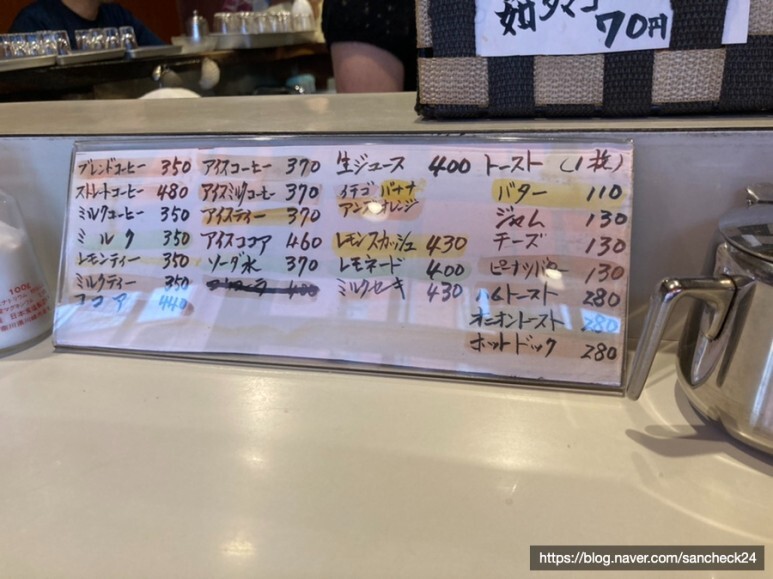 タマゴ
70円
ブレンドコーヒー 350
ストレートコーヒー 480
ミルクコーヒー 350
ミルク 350
レモンティー 350
ミルクティー 350
ココア 440
アイスコーヒー 370
アイスミルクコーヒー 370
アイスティー 370
アイスココア 460
ソーダ水 370
生ジュース 400
イチゴ バナナ
オレンジ
レモンスカッシュ 430
レモネード 400
ミルクセーキ 430
トースト (1枚)
バター 110
ジャム 130
チーズ 130
ピーナツバター 130
ハムトースト 280
オニオントースト 280
ホットドック 280
100g
https://blog.naver.com/sancheck24